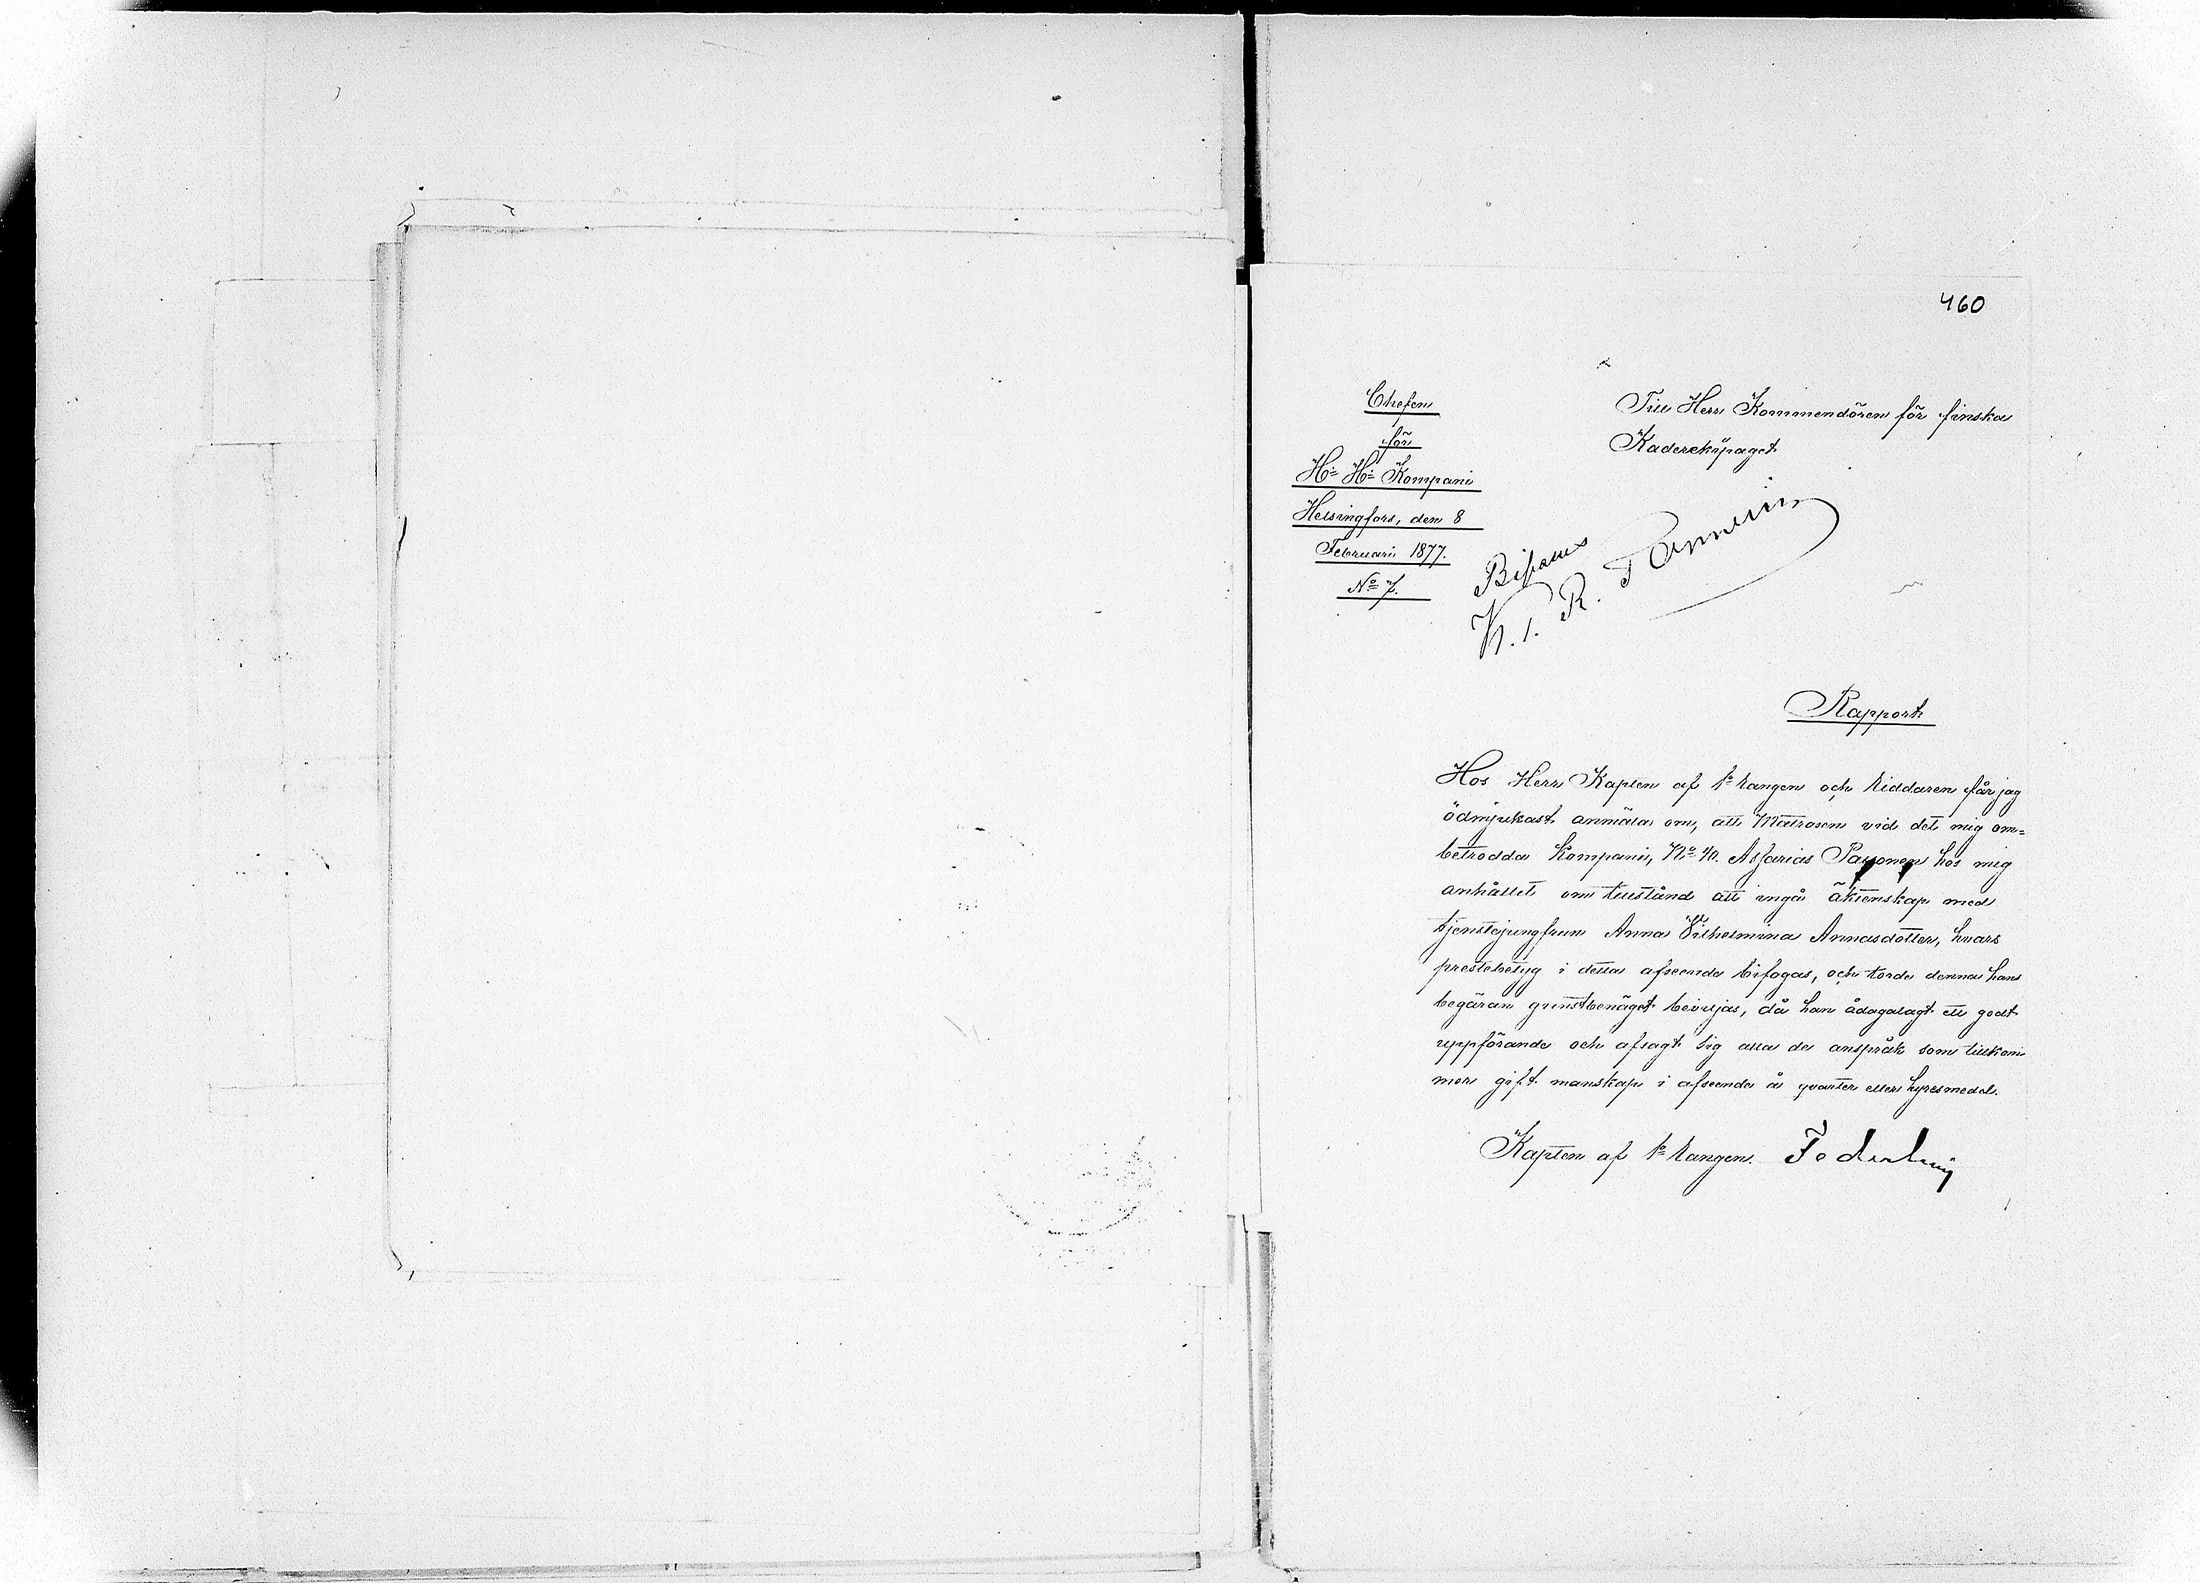 460
Chefen
för
H:s H:s Kompani
Helsingfors, den 8
Februari 1877.
No 7.
Till Herr Kommendören för finska
Kaderekipaget
Bifalles
Rapport
Hos Herr Kapten af 1a Rangen och Riddaren får jag
ödmjukast anmäla om, att Matrosen vid det mig om=
betrodda Kompani, No 40. Asfarias Payonen hos mig
anhållet om tillstånd att ingå äktenskap med
tjenstejungfrun Anna Vilhelmina Annasdotter, hvars
prestebetyg i detta afseende bifogas, och torde denna hans
begäran gunstbenäget beviljas, då han ådagalagt ett godt
uppförande och afsagt sig alla de anspråk som tillkom
mer gift manskap i afseende å qvarter eller hyresmedel.
Kapten af 1a Rangen